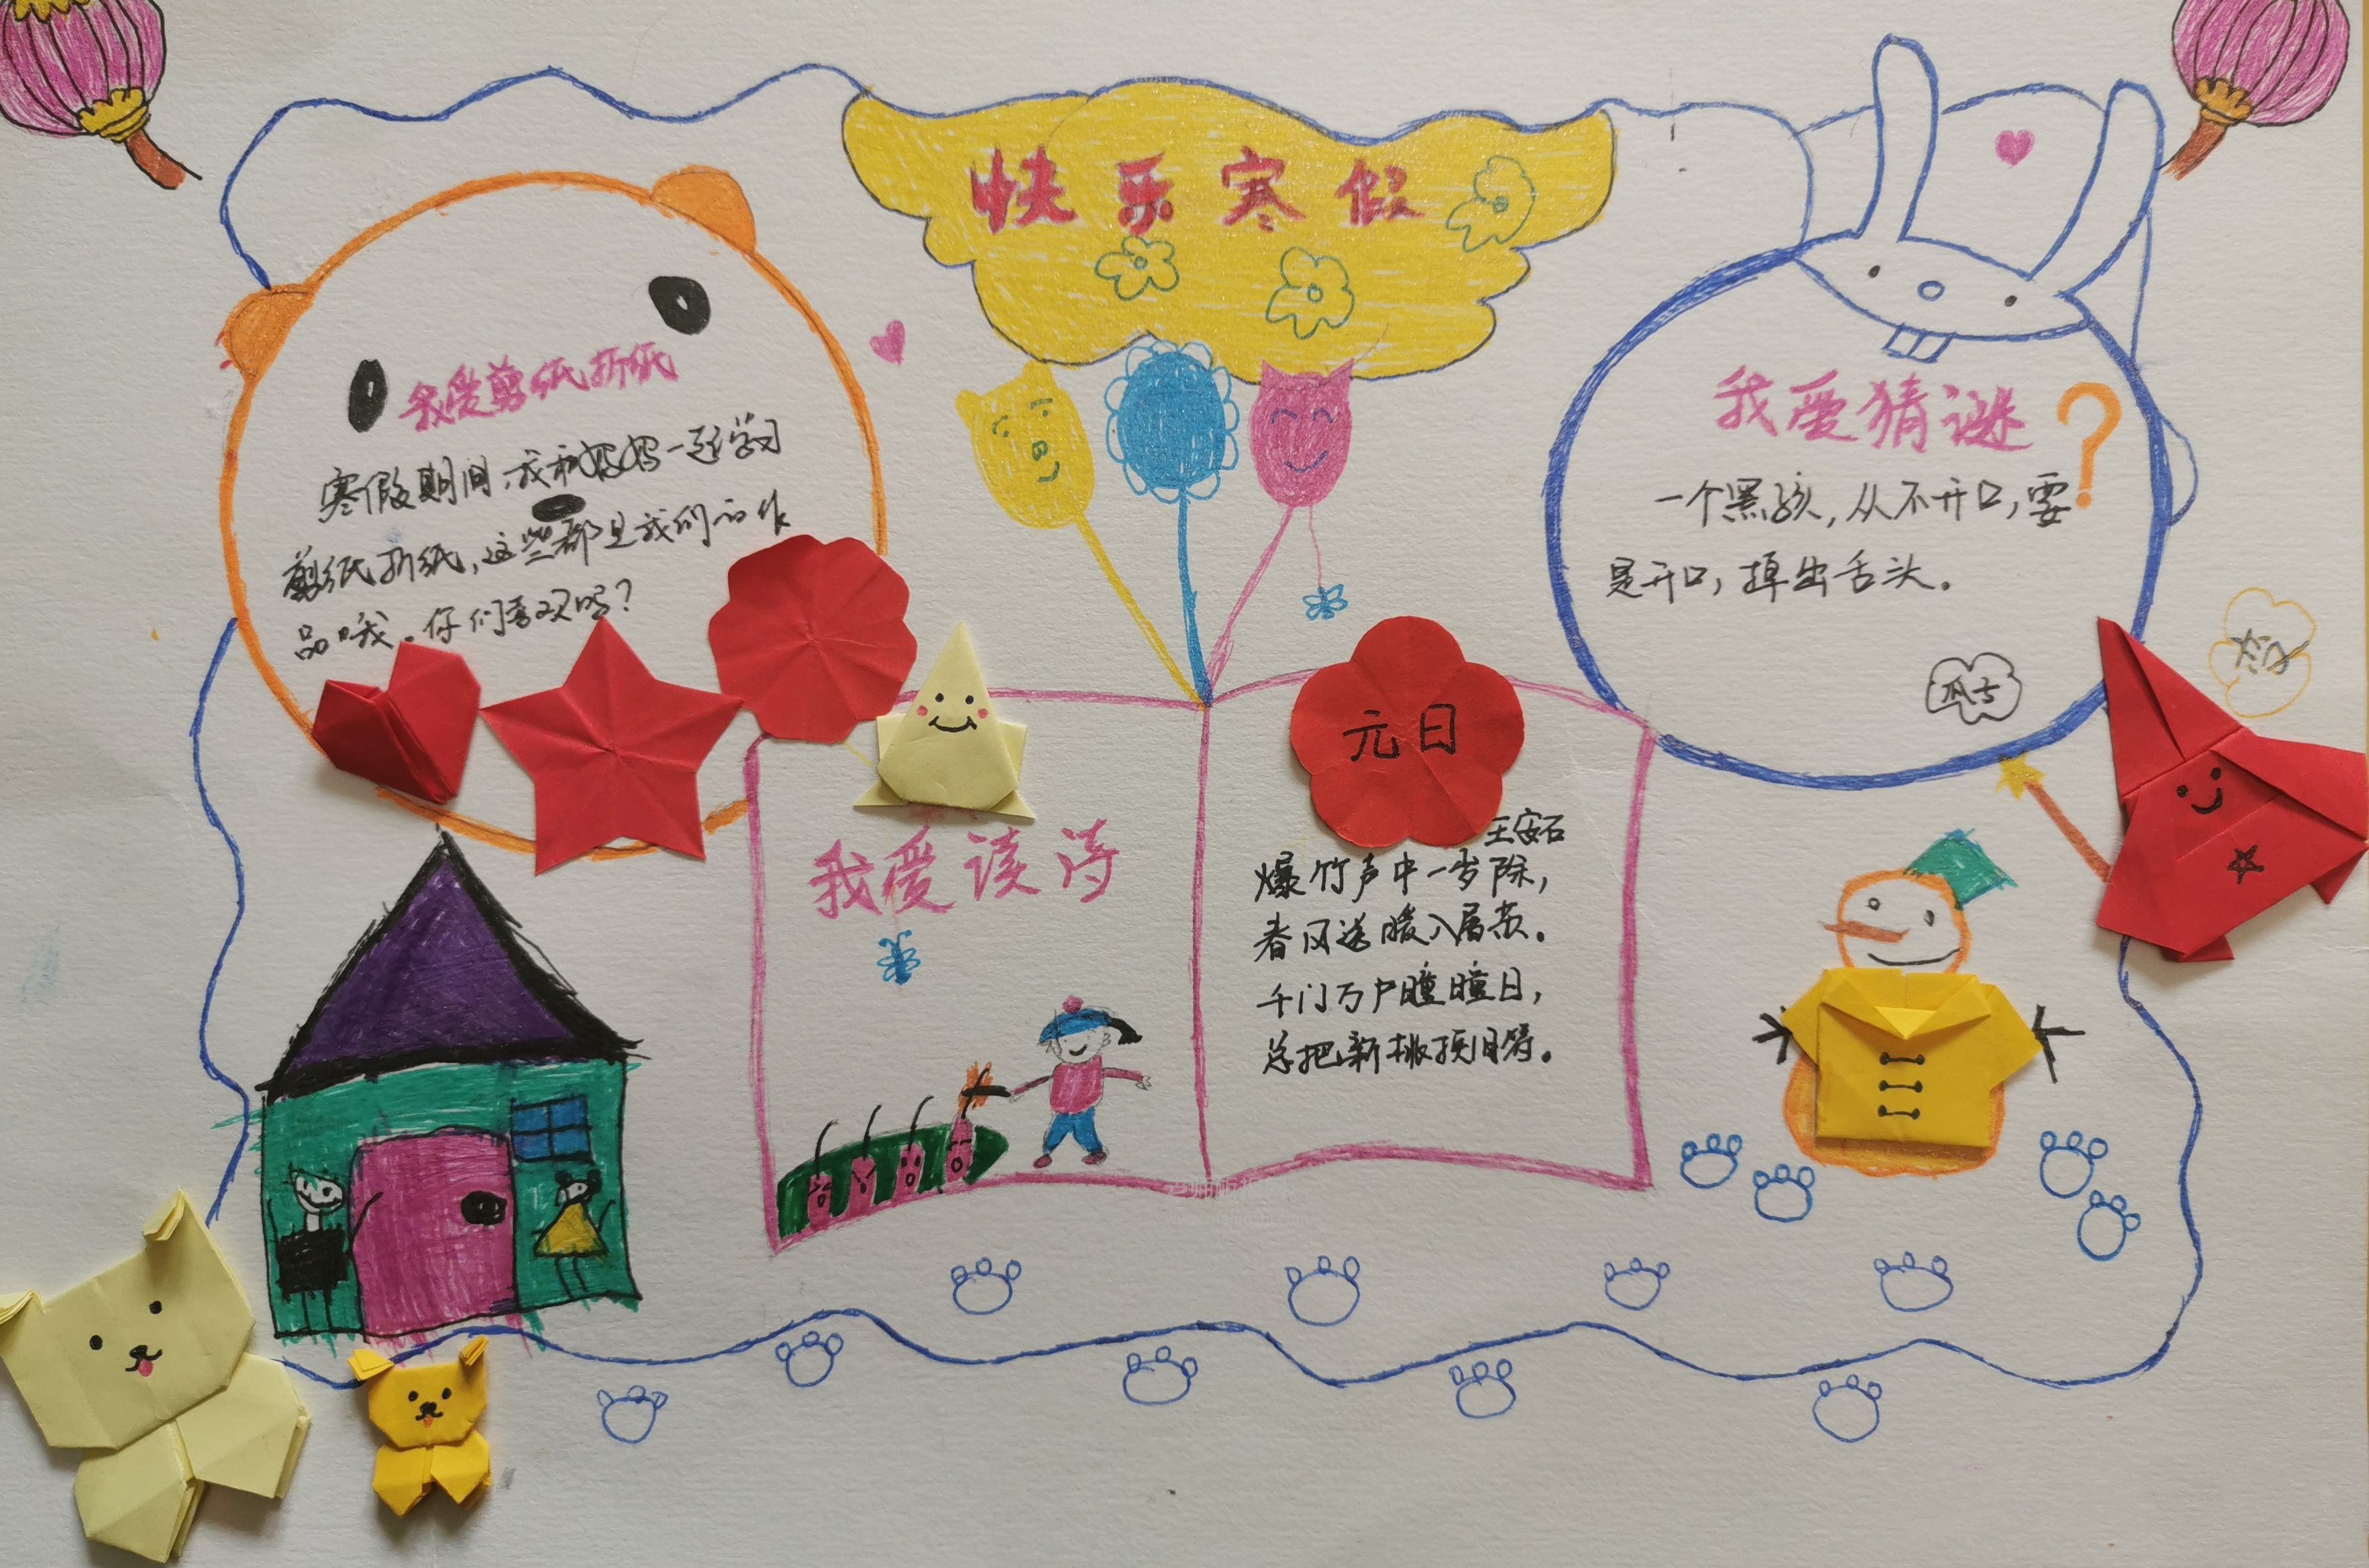 快乐寒假
我爱剪纸折纸
寒假期间,我和妈妈一起学习
剪纸折纸,这些都是我们的作
品哦。你们喜欢吗?
我爱猜谜?
一个黑孩,从不开口,要
是开口,掉出舌头。
瓜子
我爱读诗
元日
王安石
爆竹声中一岁除,
春风送暖入屠苏。
千门万户曈曈日,
总把新桃换旧符。